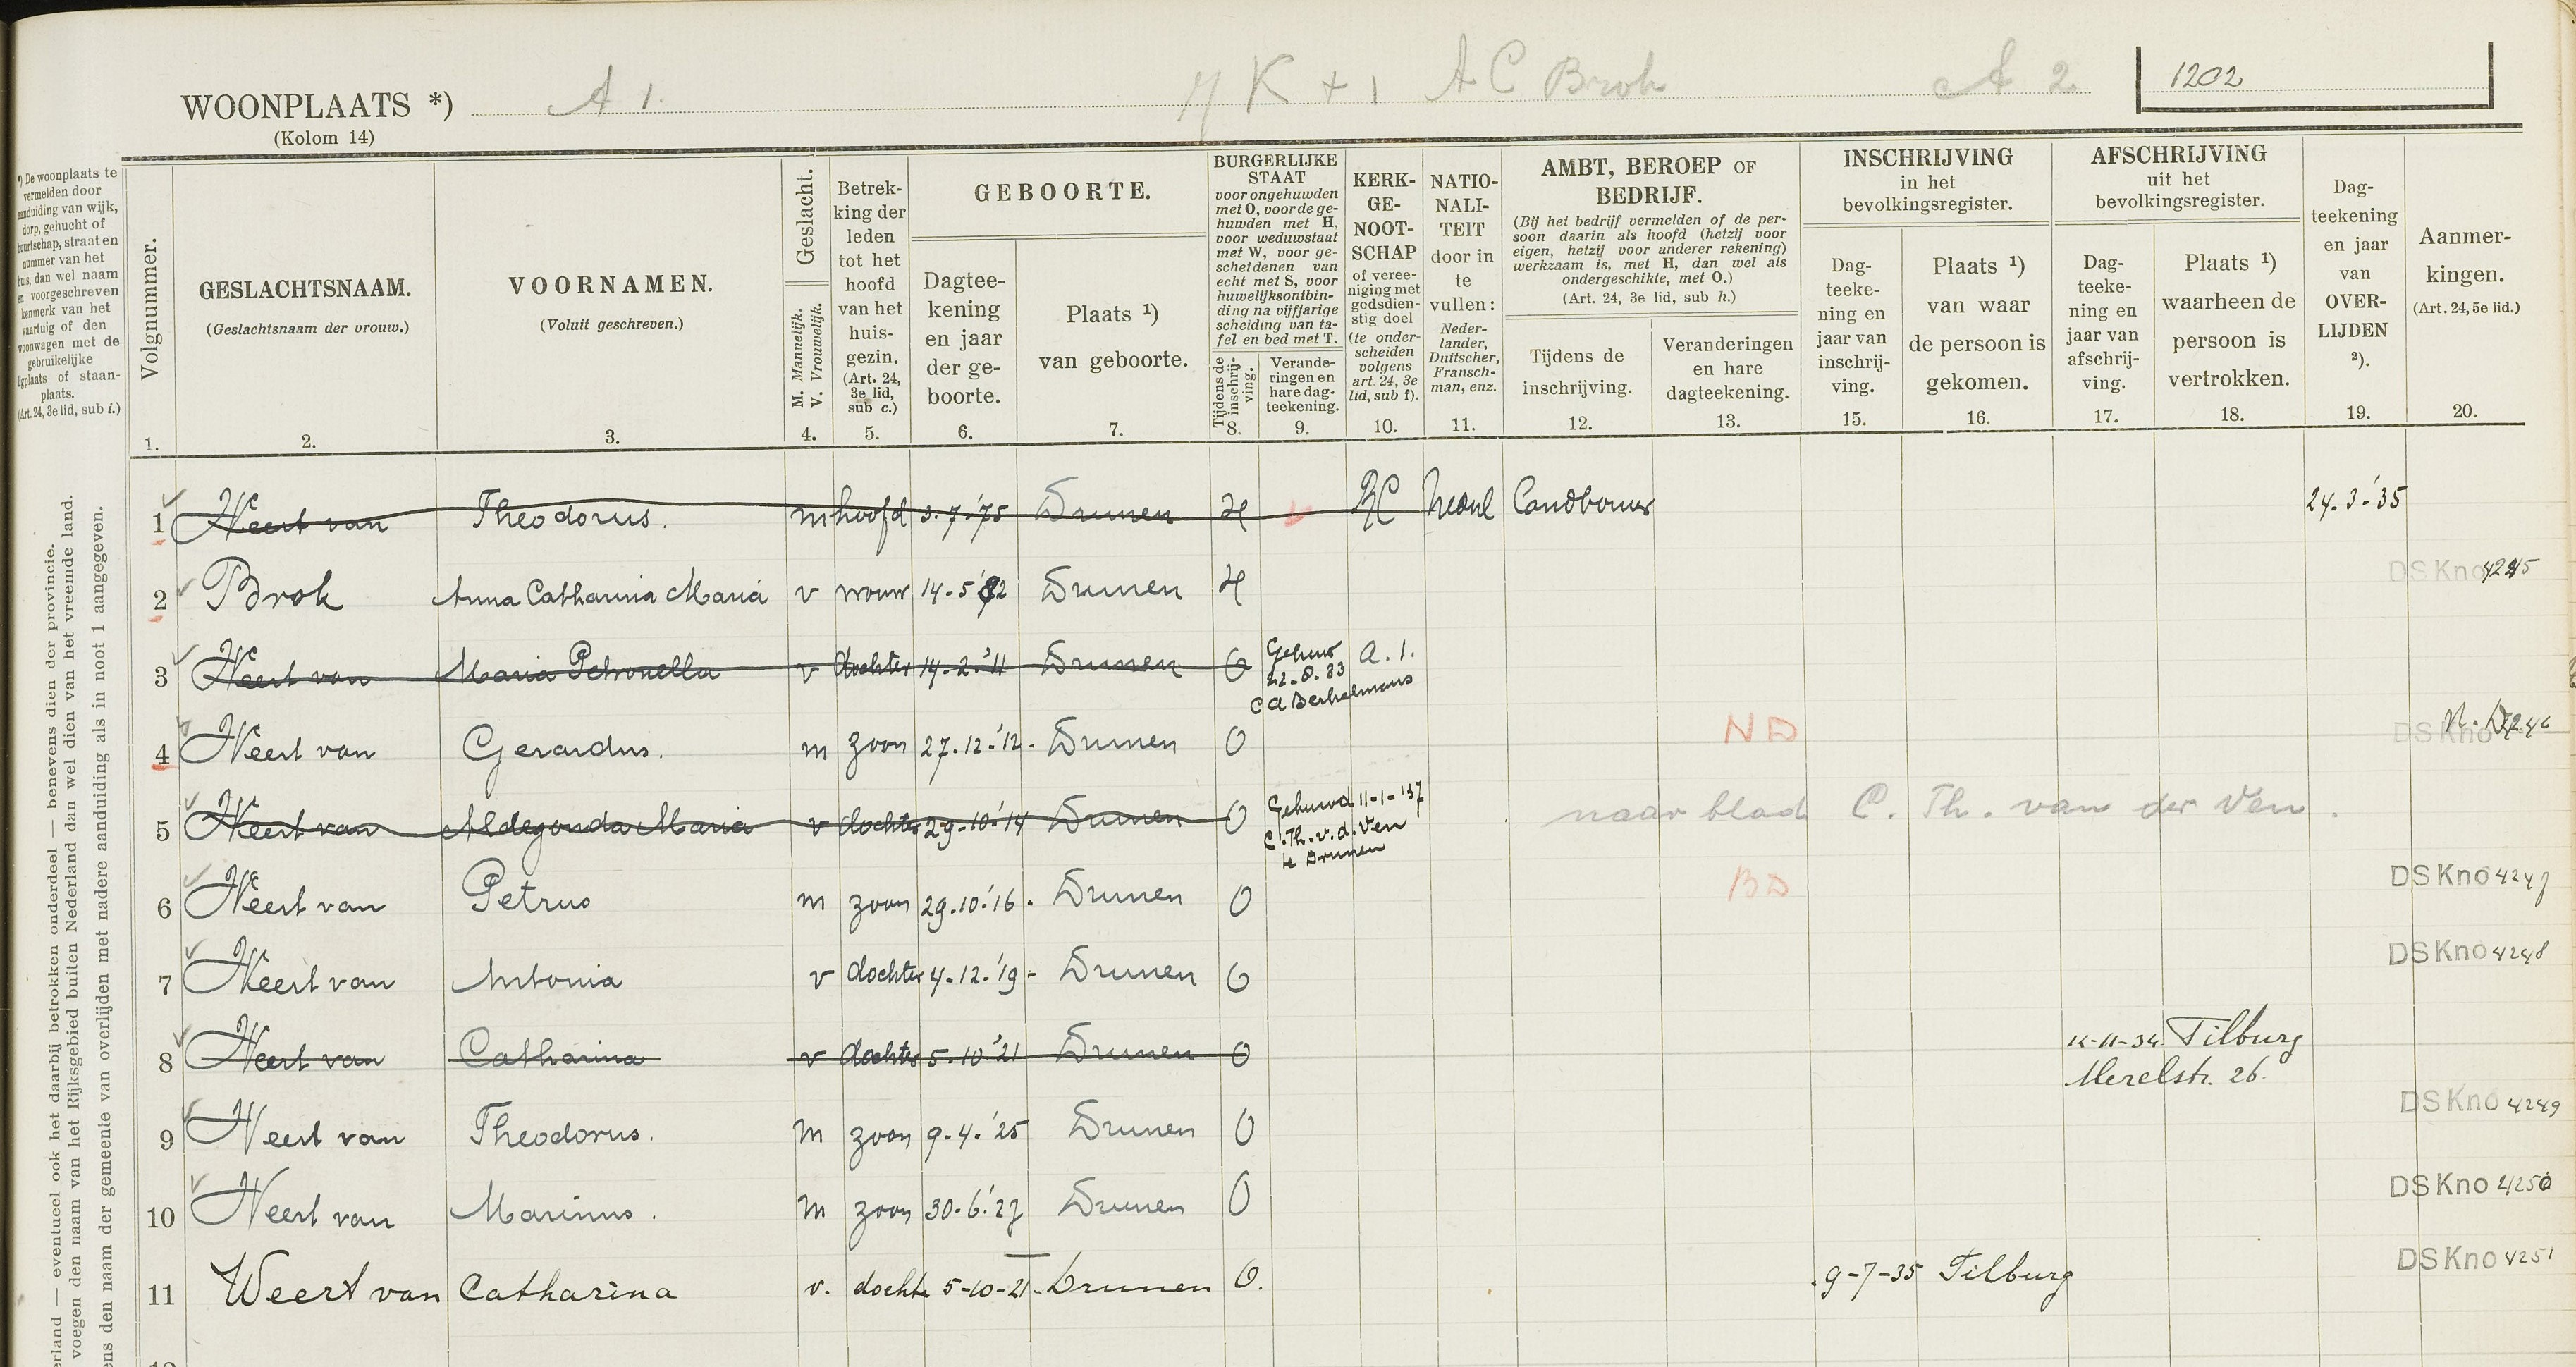 WOONPLAATS *) A 1. K + 1 A C Brok A 2 1202
(Kolom 14)
*) De woonplaats te
vermelden door
aanduiding van wijk,
dorp, gehucht of
buurtschap, straat en
nummer van het
huis, dan wel naam
en voorgeschreven
kenmerk van het
vaartuig of den
woonwagen met de
gebruikelijke
ligplaats of staan-
plaats.
(Art. 24, 3e lid, sub i.)
erland — eventueel ook het daarbij betrokken onderdeel — benevens dien der provincie.
voegen den naam van het Rijksgebied buiten Nederland dan wel dien van het vreemde land.
ens den naam der gemeente van overlijden met nadere aanduiding als in noot 1 aangegeven.
Volgnummer.
1.
GESLACHTSNAAM.
(Geslachtsnaam der vrouw.)
2.
VOORNAMEN.
(Voluit geschreven.)
3.
Geslacht.
M. Mannelijk.
V. Vrouwelijk.
4.
Betrek-
king der
leden
tot het
hoofd
van het
huis-
gezin.
(Art. 24,
3e lid,
sub c.)
5.
GEBOORTE.
Dagtee-
kening
en jaar
der ge-
boorte.
6.
Plaats 1)
van geboorte.
7.
BURGERLIJKE
STAAT
voor ongehuwden
met O, voor de ge-
huwden met H,
voor weduwstaat
met W, voor ge-
scheidenen van
echt met S, voor
huwelijksontbin-
ding na vijfjarige
scheiding van ta-
fel en bed met T.
Tijdens de
inschrij-
ving.
8.
Verande-
ringen en
hare dag-
teekening.
9.
KERK-
GE-
NOOT-
SCHAP
of veree-
niging met
godsdien-
stig doel
(te onder-
scheiden
volgens
art. 24, 3e
lid, sub f).
10.
NATIO-
NALI-
TEIT
door in
te
vullen:
Neder-
lander,
Duitscher,
Fransch-
man, enz.
11.
AMBT, BEROEP OF
BEDRIJF.
(Bij het bedrijf vermelden of de per-
soon daarin als hoofd (hetzij voor
eigen, hetzij voor anderer rekening)
werkzaam is, met H, dan wel als
ondergeschikte, met O.)
(Art. 24, 3e lid, sub h.)
Tijdens de
inschrijving.
12.
Veranderingen
en hare
dagteekening.
13.
INSCHRIJVING
in het
bevolkingsregister.
Dag-
teeke-
ning en
jaar van
inschrij-
ving.
15.
Plaats 1)
van waar
de persoon is
gekomen.
16.
AFSCHRIJVING
uit het
bevolkingsregister.
Dag-
teeke-
ning en
jaar van
afschrij-
ving.
17.
Plaats 1)
waarheen de
persoon is
vertrokken.
18.
Dag-
teekening
en jaar
van
OVER-
LIJDEN
2).
19.
Aanmer-
kingen.
(Art. 24, 5e lid.)
20.
1 Weert van Theodorus. m hoofd 3.7.'75 Drunen H RC Nedl Landbouwer 24.3.'35
2 Brok Anna Catharina Maria v vrouw 14-5'82 Drunen H DS Kno 4245
3 Weert van Maria Petronella v dochter 14.2.'11 Drunen O Gehuwd A.1.
22.8.33
C A Berkelmans
4 Weert van Gerardus. m zoon 27.12.'12. Drunen O ND DS Kno 4246
5 Weert van Aldegonda Maria v dochter 29.10.'14 Drunen O Gehuwd 11-1-'37 naar blad C. Th. van der Ven.
C.Th.v.d.Ven
te Drunen
6 Weert van Petrus m zoon 29.10.'16. Drunen O BD DS Kno 4247
7 Weert van Antonia v dochter 4.12.'19- Drunen O DS Kno 4248
8 Weert van Catharina v dochter 5.10'21 Drunen O 12-11-34 Tilburg
Merelstr. 26.
9 Weert van Theodorus. m zoon 9.4.'25 Drunen O DS Kno 4249
10 Weert van Marinus. m zoon 30.6.'27 Drunen O DS Kno 4250
11 Weert van Catharina v. docht. 5-10-21- Drunen O. 9-7-35 Tilburg DS Kno 4251